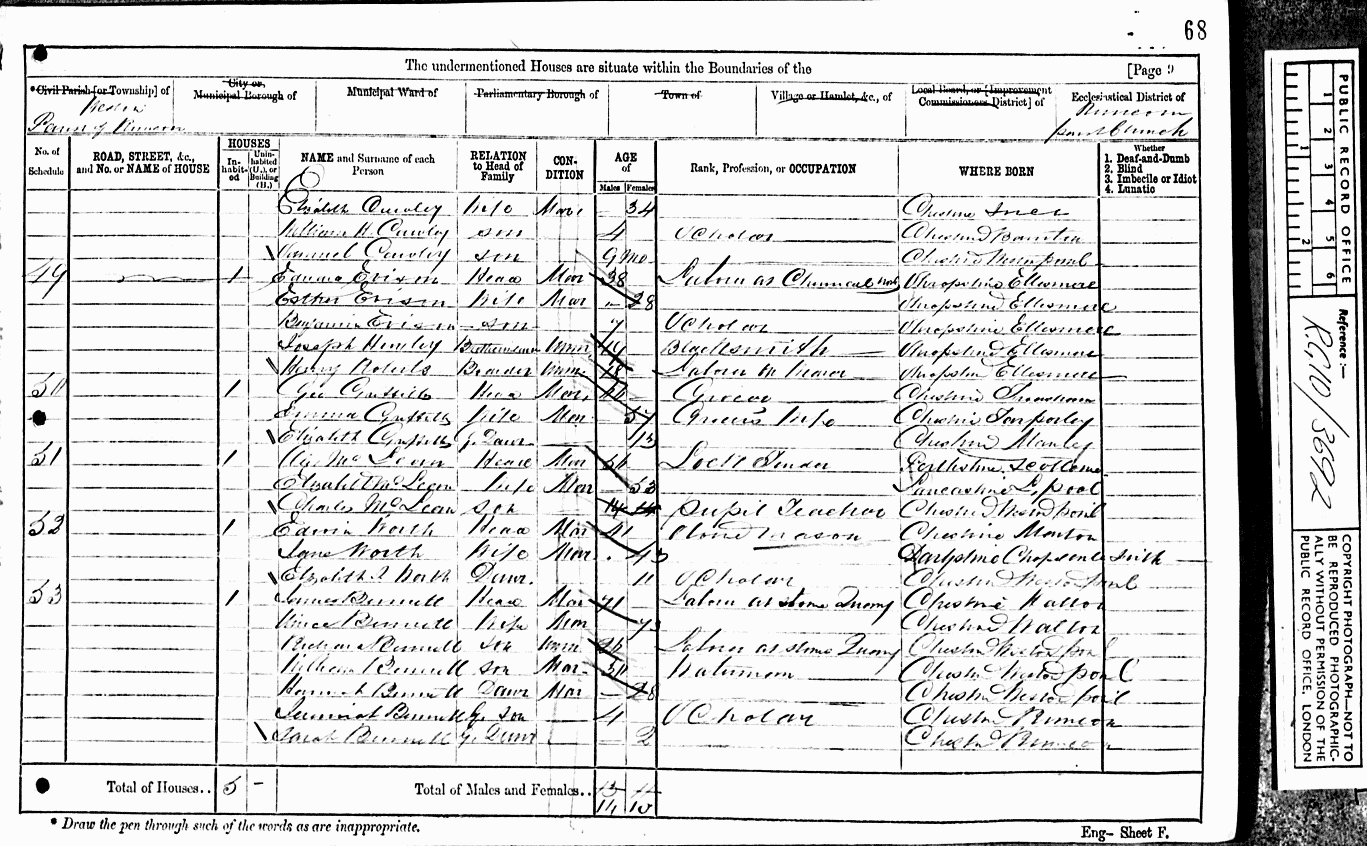 68
The undermentioned Houses are situate within the Boundaries of the [Page 9
*Civil Parish [or Township] of
City or Municipal Borough of
Municipal Ward of
Parliamentary Borough of
Town of
Village or Hamlet, &c., of
Local Board, or [Improvement Commissioners District] of
Ecclesiastical District of
Weston
Parish of Runcorn
Runcorn
Church
No. of Schedule
ROAD, STREET, &c., and No. or NAME of HOUSE
HOUSES
Inhabited
Uninhabited (U.), or Building (B.)
NAME and Surname of each Person
RELATION to Head of Family
CONDITION
AGE of
Males Females
Rank, Profession, or OCCUPATION
WHERE BORN
Whether
1. Deaf-and-Dumb
2. Blind
3. Imbecile or Idiot
4. Lunatic
Elizabeth Cawley Wife Mar 34 Cheshire
William H. Cawley son 4 Scholar Cheshire
Samuel Cawley son 9 Mo Cheshire Weston point
49 1 Edward Head Mar 38 Labour at Chemical Shropshire Ellesmere
Esther Wife Mar 28 Shropshire Ellesmere
Benjamin son 7 Scholar Shropshire Ellesmere
Joseph Unm 19 Blacksmith Shropshire Ellesmere
Henry Roberts Boarder Unm 18 Labour Shropshire Ellesmere
50 1 Geo Griffith Head Mar Grocer Cheshire
Emma Griffith Wife Mar 57 Grocers Wife Cheshire Tarporley
Elizabeth Griffith G. Daur 13 Cheshire Manley
51 1 McLean Head Mar 56 Lock Tender Perthshire Scotland
Elizabeth McLean Wife Mar 53 Lancashire L,pool
Charles McLean son 14 Pupil Teacher Cheshire Weston point
52 1 Edwin Worth Head Mar 41 Stone Mason Cheshire
Jane Worth Wife Mar 43 Chapel en le Frith
Elizabeth Worth Daur. 11 Scholar Cheshire Weston point
53 1 James Bennett Head Mar 71 Labour at stone Quarry Cheshire Halton
Bennett Wife Mar Cheshire Halton
Richard Bennett Son Unm 26 Labour at stone Quarry Cheshire Weston point
William Bennett son Mar 30 Waterman Cheshire Weston point
Hannah Bennett Daur Mar 28 Cheshire Weston point
Jeremiah Bennett G. son 4 Scholar Cheshire Runcorn
Sarah Bennett G. Daur 2 Cheshire Runcorn
Total of Houses.. 5 - Total of Males and Females.. 14 10
* Draw the pen through such of the words as are inappropriate.
Eng- Sheet F.
PUBLIC RECORD OFFICE
1 2 3 4 5 6
1 2
Reference :-
RG10/3692
COPYRIGHT PHOTOGRAPH—NOT TO
BE REPRODUCED PHOTOGRAPHIC-
ALLY WITHOUT PERMISSION OF THE
PUBLIC RECORD OFFICE, LONDON